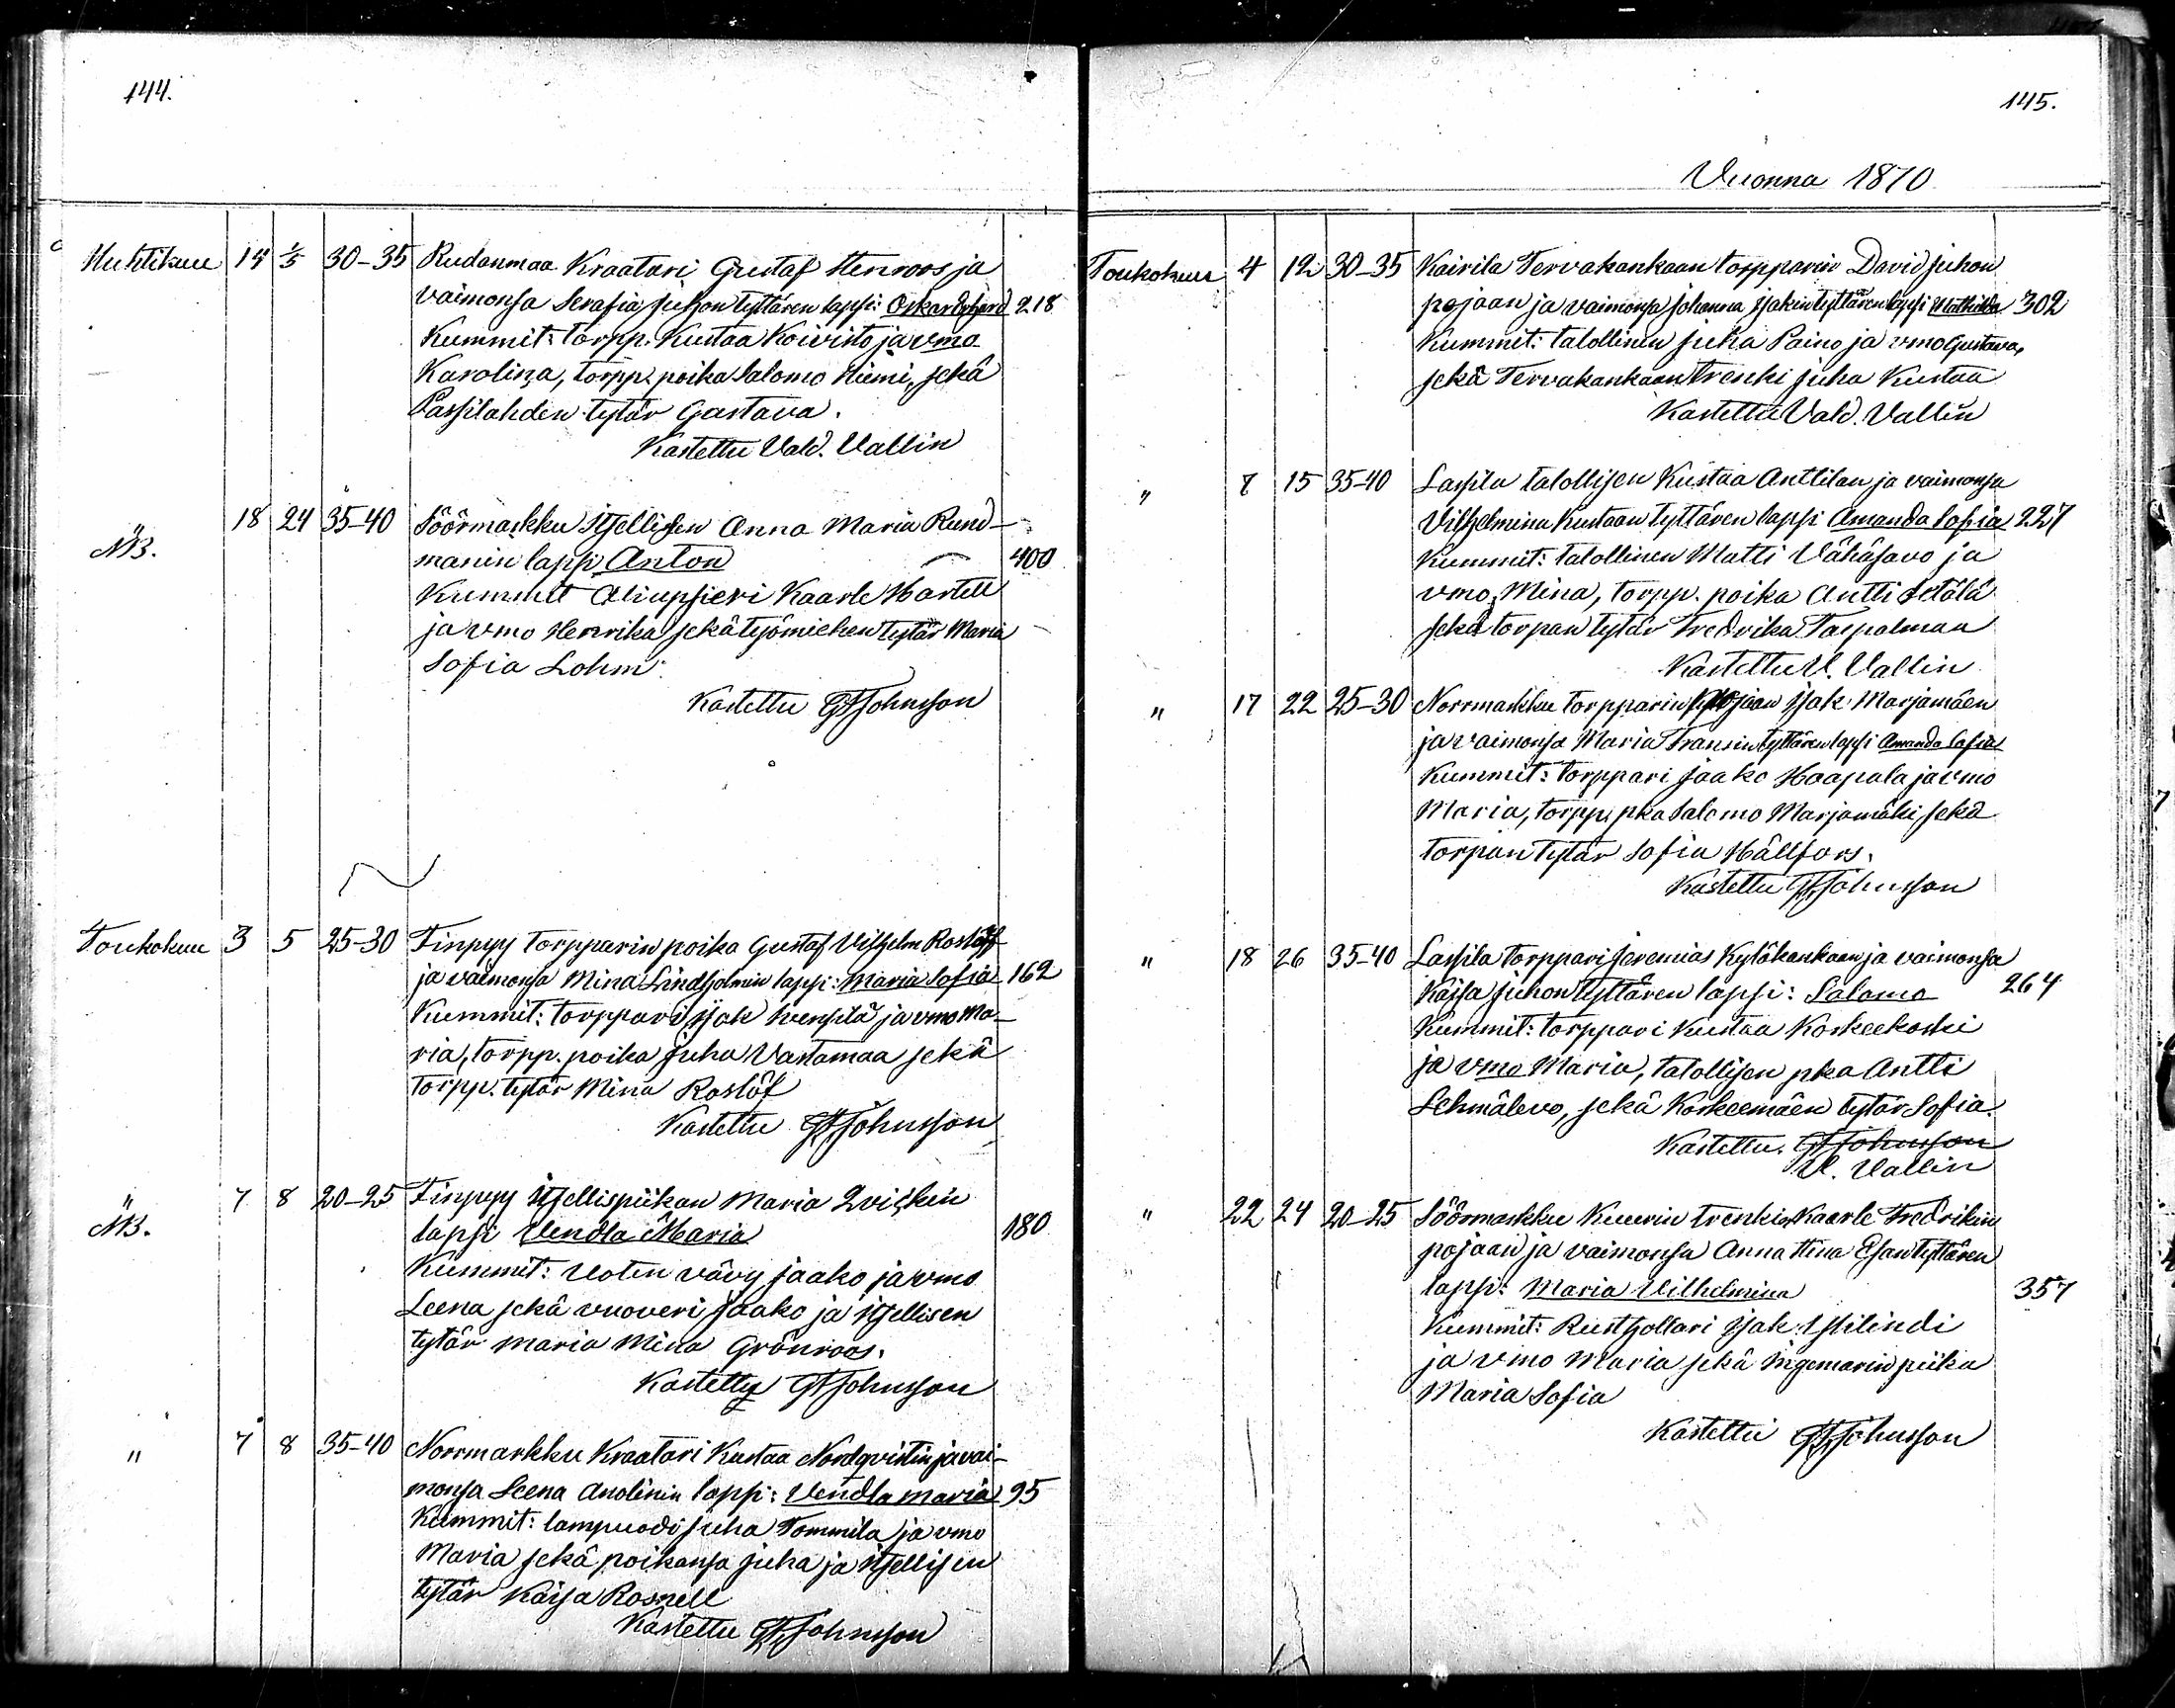 144.
Huhtikuu 14 1/5 30-35 Rudanmaa Kraatari Gustaf Henroos ja
vaimonsa Serafia Juhon tyttären lapsi: Oskar 218
Kummit: torpp. Kustaa Koivisto ja vmo
Karolina, torpp. poika Salomo Niemi, sekä
Passilahden tytär Gustava.
Kastettu Vald. Vallin
" 18 24 35-40 Söörmarkku Itsellisen Anna Maria Rund-
NB. manin lapsi Anton 400
Kummit Aliupsieri Kaarle Hartell
ja vmo Henrika sekä työmiehen tytär Maria
Sofia Lohm.
Kastettu GAJohnsson
Toukokuu 3 5 25-30 Finpyy torpparin poika Gustaf Vilhelm Roslöff
ja vaimonsa Mina Lindholmin lapsi: Maria Sofia 162
Kummit: torppari Isak ja vmo Ma-
ria, torpp. poika Juha Vastamaa sekä
torpp. tytär Mina Roslöf
Kastettu GAJohnsson
" 7 8 20-25 Finpyy Itsellispiikan Maria Qvickin
NB. lapsi Vendla Maria 180
Kummit: Uoten vävy Jaako ja vmo
Leena sekä vuoveri Jaako ja itsellisen
tytär Maria Mina Grönroos.
Kastettu GAJohnsson
" 7 8 35-40 Norrmarkku Kraatari Kustaa Nordqvistin ja vai-
monsa Leena Anolinin lapsi: Vendla Maria 95
Kummit: lampuodi Juha Tommila ja vmo
Maria sekä poikansa Juha ja itsellisen
tytär Kaisa Rosnell
Kastettu GAJohnsson
145.
Vuonna 1870
Toukokuu 4 12 30-35 Kairila Tervakankaan torpparin David Juhon
pojaan ja vaimonsa Johanna Isakin tyttären lapsi Mathilda 302
Kummit: talollinen Juha Paino ja vmo Gustava,
sekä Tervakankaan trenki Juha Kustaa
Kastettu Vald. Vallin
" 7 15 35-40 Lassila talollisen Kustaa Anttilan ja vaimonsa
Vilhelmina Kustaan tyttären lapsi Amanda Sofia 227
Kummit: talollinen Matti Vähäsavo ja
vmo Mina, torpp. poika Antti Setälä
sekä torpan tytär Fredrika Taipalmaa
Kastettu V. Vallin
" 17 22 25-30 Norrmarkku torpparin pojaan Isak Marjamäen
ja vaimonsa Maria Fransin tyttären lapsi Amanda Sofia
Kummit: torppari Jaako Haapala ja vmo
Maria, torpp. pka Salomo Marjamäki sekä
torpan tytär Sofia Hällfors.
Kastettu GAJohnsson
" 18 26 35-40 Lassila torppari Jeremias Kylökankaan ja vaimonsa
Kaisa Juhon tyttären lapsi: Salomo 264
Kummit: torppari Kustaa Koskeekoski
ja vmo Maria, talollisen pka Antti
Lehmälevo, sekä Koskeemäen tytär Sofia.
Kastettu. GAJohnsson
V. Vallin
" 22 24 20-25 Söörmarkku Kuuvin trenkin Kaarle Fredrikin
pojaan ja vaimonsa Anna Stina Esan tyttären
lapsi: Maria Vilhelmina 357
Kummit: Rusthollari Isak Ylilindi
ja vmo Maria sekä Ingemarin piika
Maria Sofia
Kastettu GAJohnsson